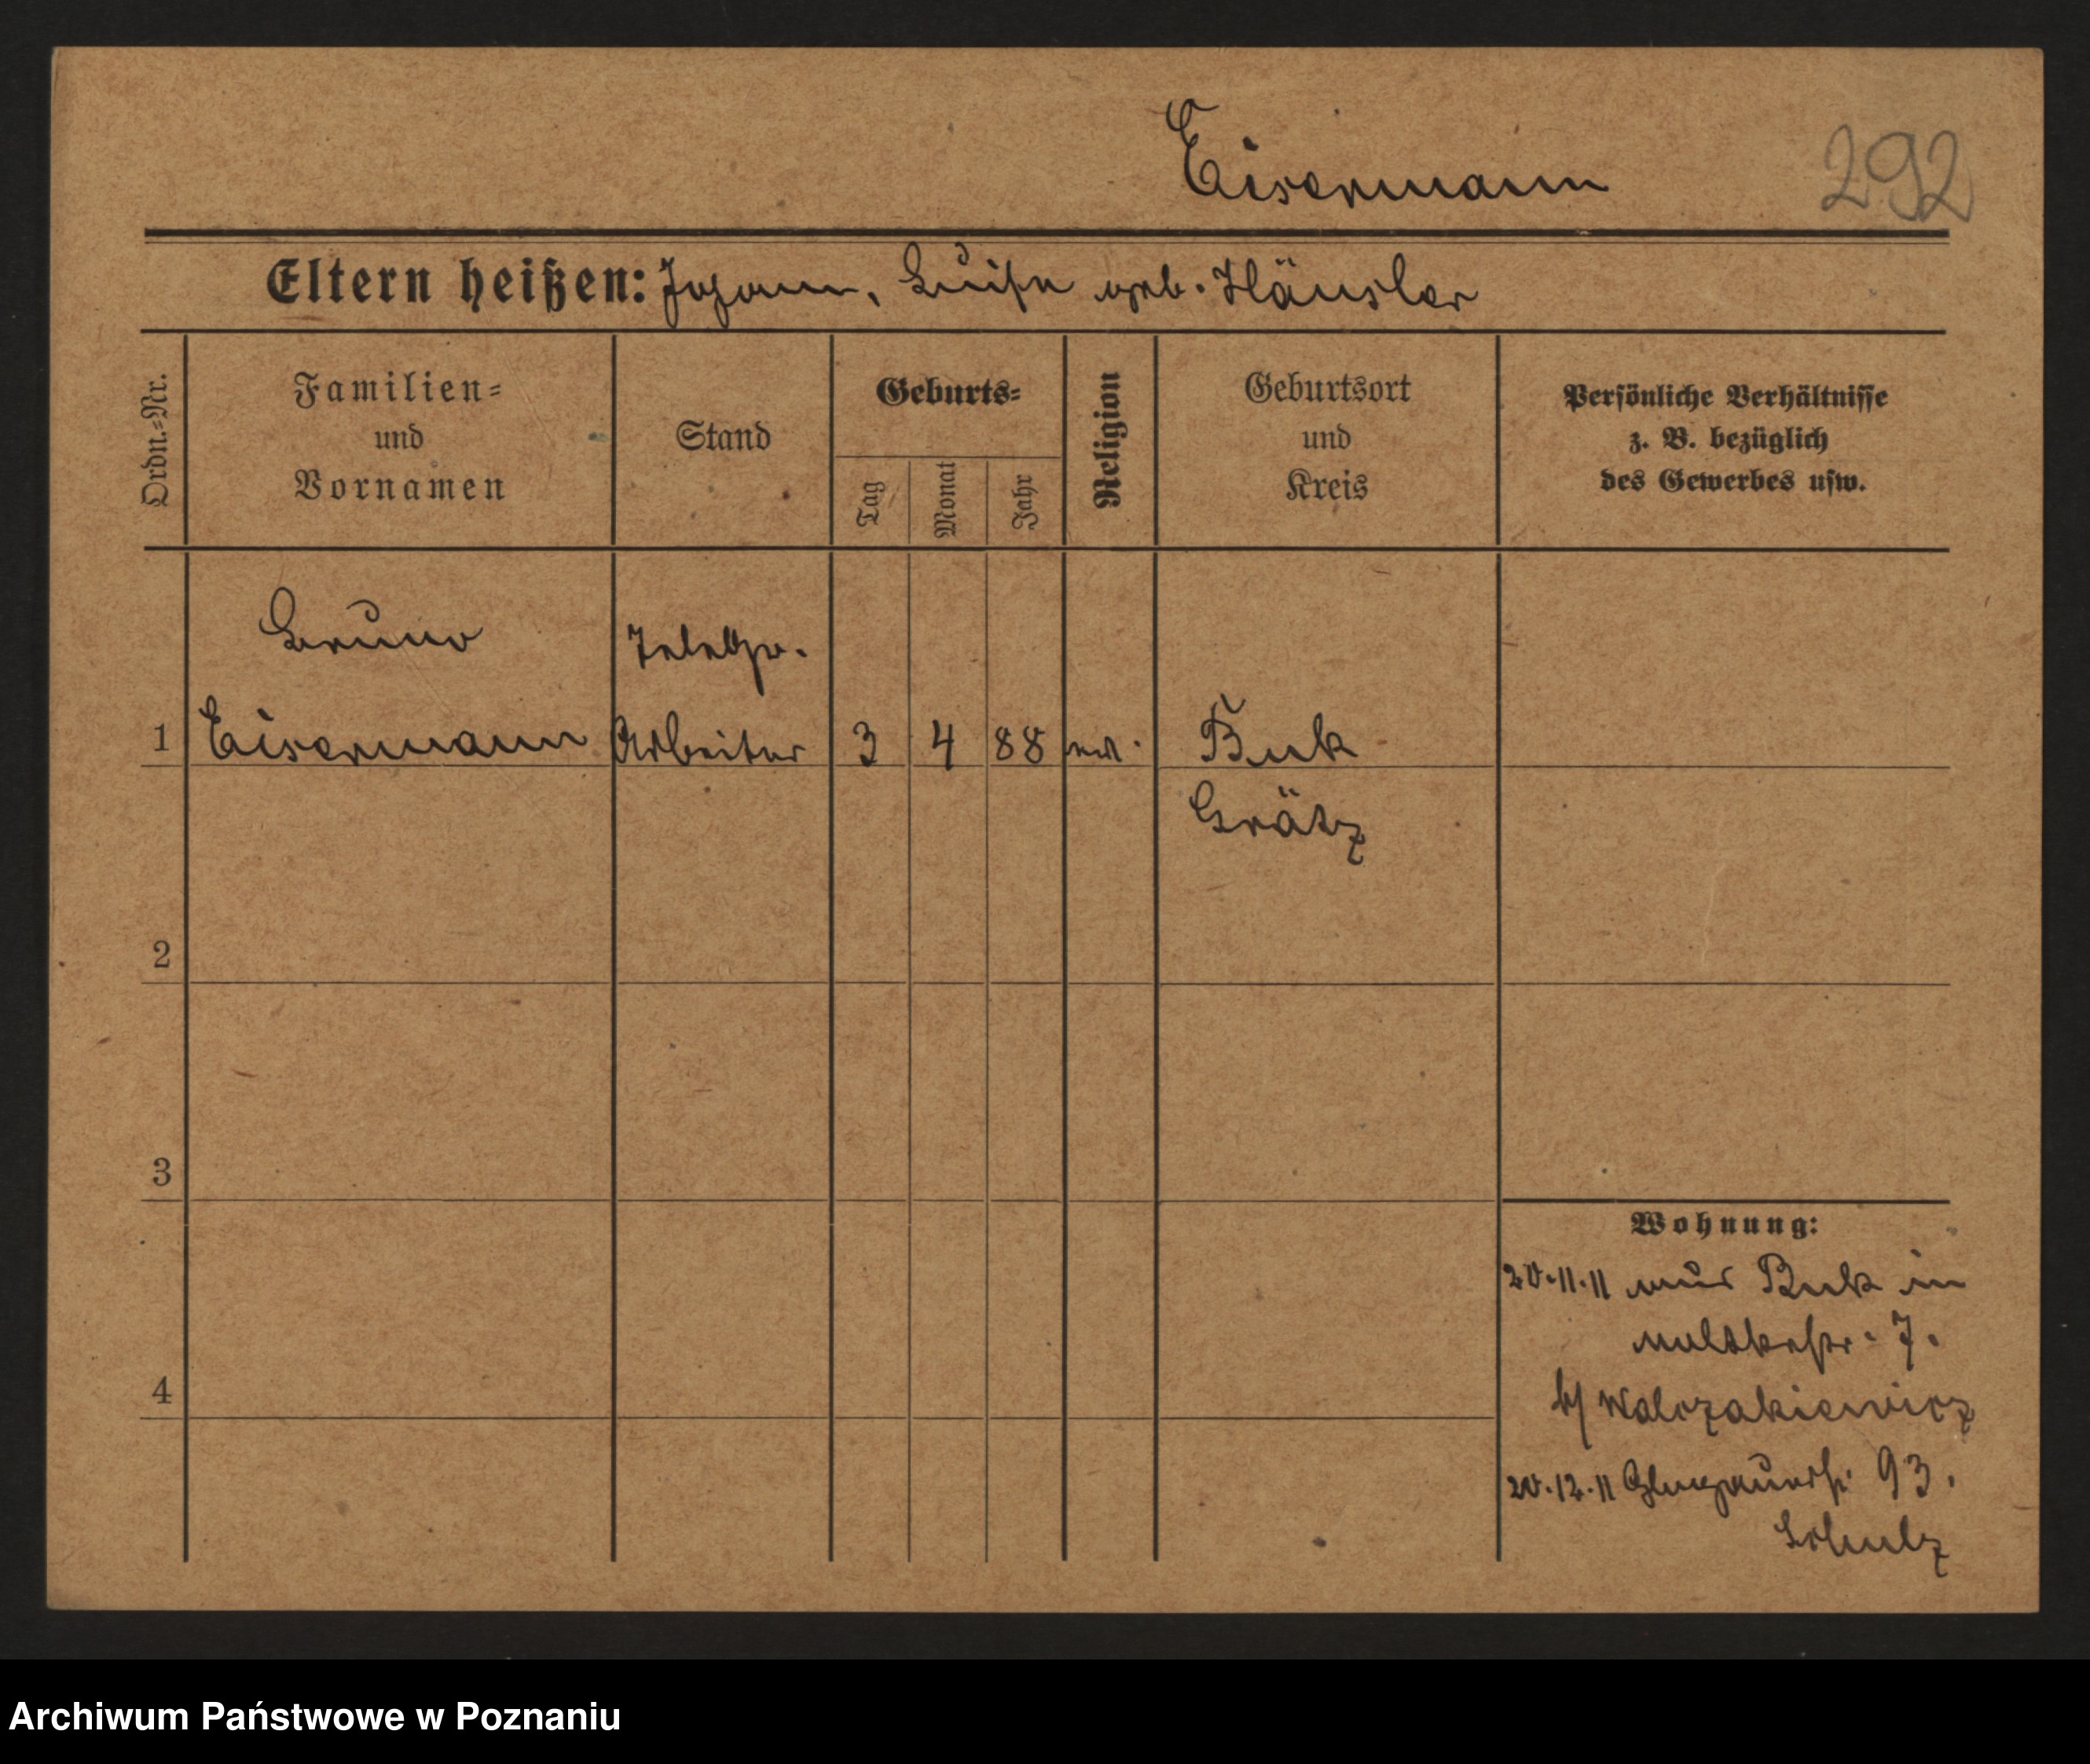 Eisermann
292
Eltern heißen: Johann, Luise geb. Häusler
Ordn.-Nr.
Familien-
und
Vornamen
Stand
Geburts-
Tag
Monat
Jahr
Religion
Geburtsort
und
Kreis
Persönliche Verhältnisse
z. B. bezüglich
des Gewerbes usw.
Bruno
Telegr.
1 Eisermann Arbeiter 3 4 88 ev. Buk
Grätz
2
3
Wohnung:
20.11.11 aus Buk in
Moltkestr. 7.
4
b/ Walczakiewicz
20.12.11 Glogauerstr. 93.
Schulz
Archiwum Państwowe w Poznaniu